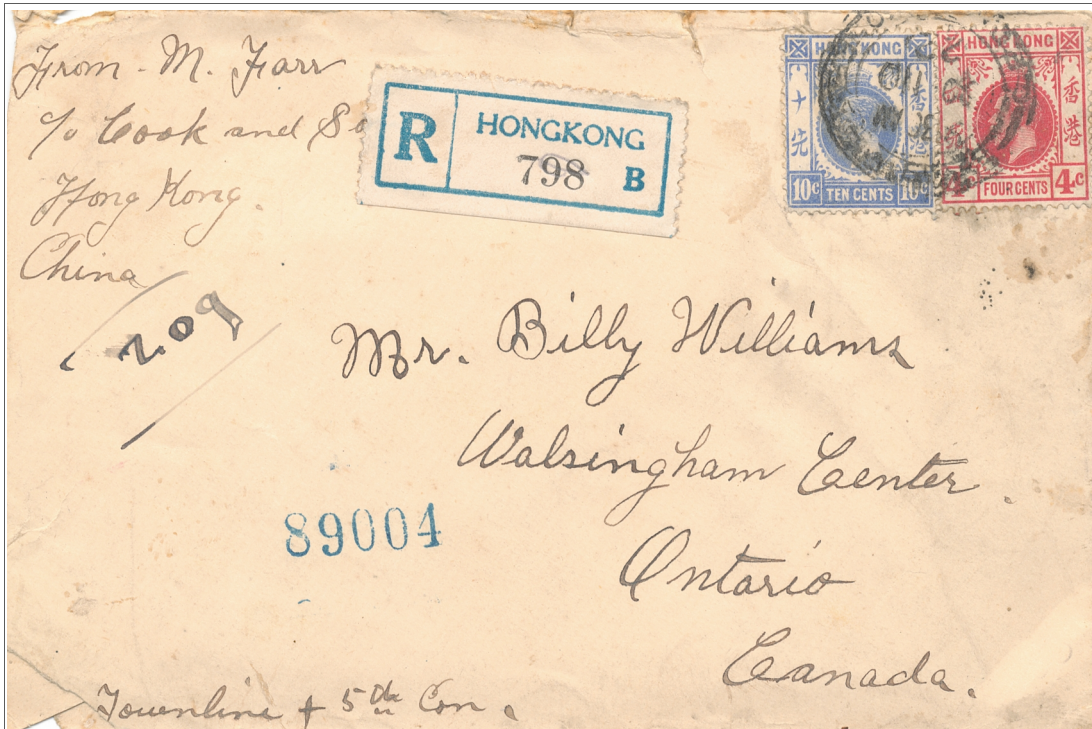 From - M. Farr
c/o Cook and So
Hong Kong.
China
R HONGKONG
798 B
HONG KONG
十先
香港
10c TEN CENTS 10c
HONG KONG
香港
4c FOUR CENTS 4c
209
Mr. Billy Williams
Walsingham Center.
Ontario
Canada.
89004
Townline + 5th Con.